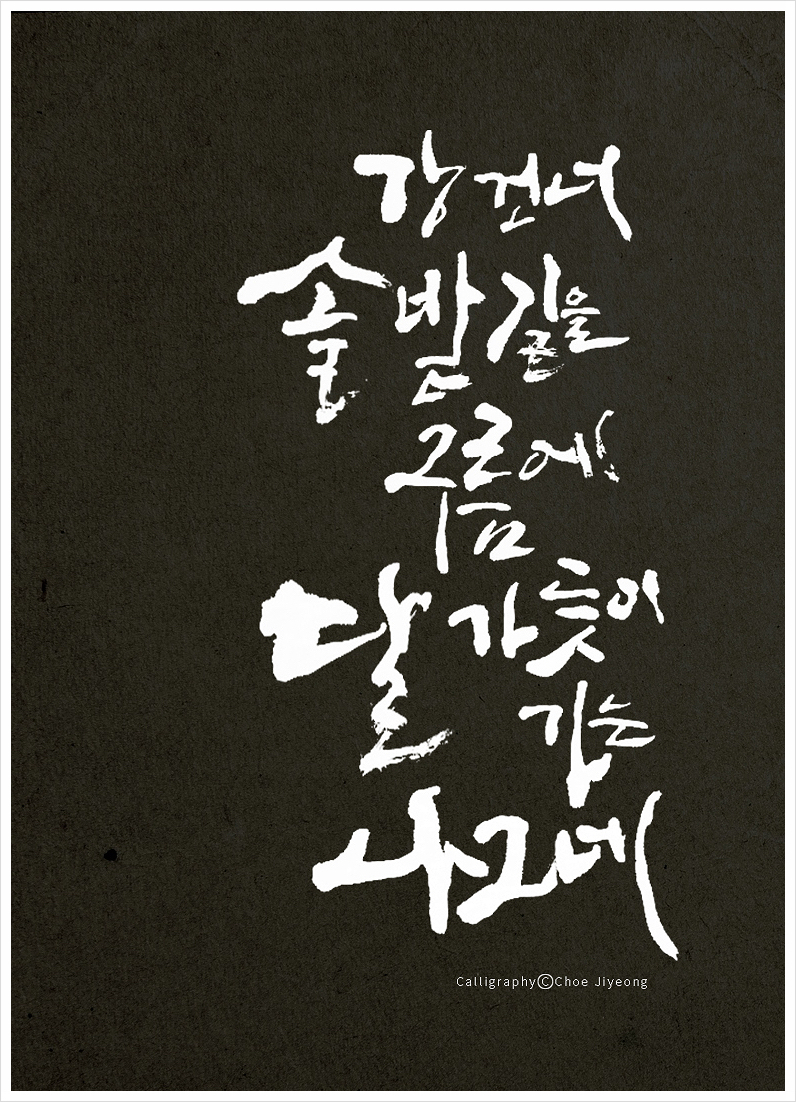 강 건너
솔밭길을
구름에
달 가듯이
가는
나그네
CalligraphyⓒChoe Jiyeong